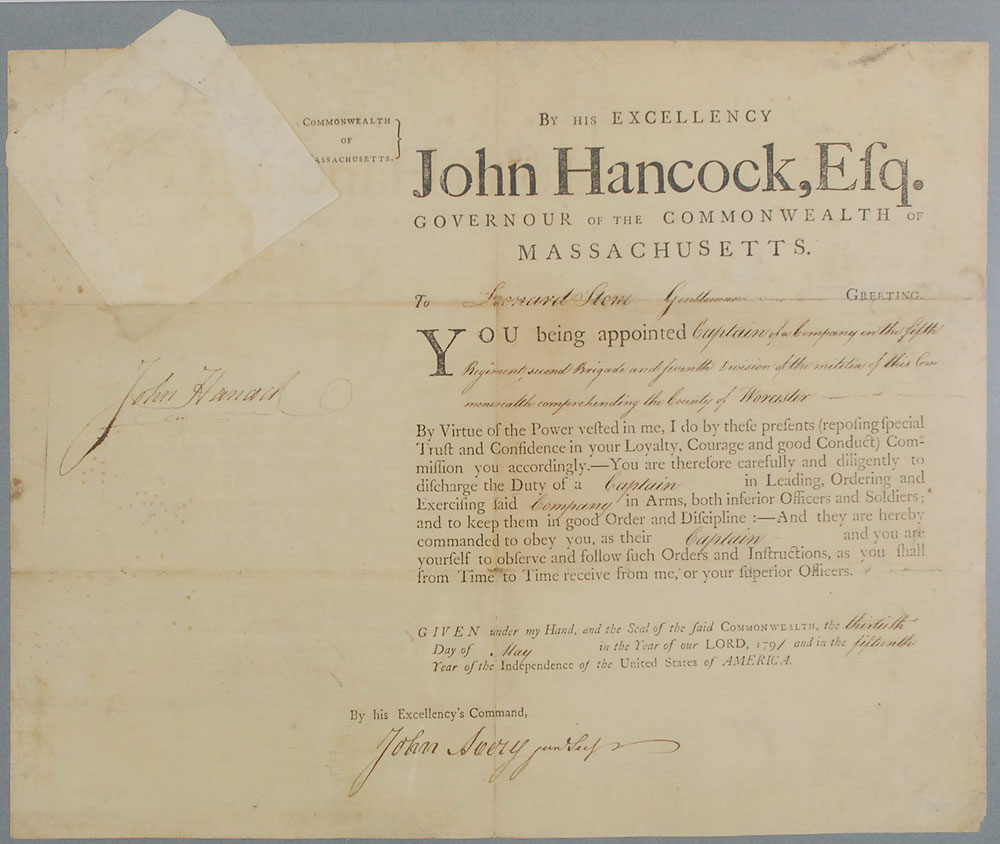 COMMONWEALTH
OF
MASSACHUSETTS.
BY HIS EXCELLENCY
John Hancock, Eſq.
GOVERNOUR OF THE COMMONWEALTH OF
MASSACHUSETTS.
To Leonard Stone Gentleman GREETING.
YOU being appointed Captain of a Company in the fifth
Regiment, second Brigade and seventh Division of the militia of this Com
monwealth comprehending the County of Worcester
By Virtue of the Power veſted in me, I do by theſe preſents (repoſing ſpecial
Truſt and Confidence in your Loyalty, Courage and good Conduct) Com-
miſſion you accordingly.—You are therefore carefully and diligently to
diſcharge the Duty of a Captain in Leading, Ordering and
Exerciſing ſaid Company in Arms, both inferior Officers and Soldiers;
and to keep them in good Order and Diſcipline :—And they are hereby
commanded to obey you, as their Captain and you are
yourſelf to obſerve and follow ſuch Orders and Inſtructions, as you ſhall
from Time to Time receive from me, or your ſuperior Officers.
John Hancock
GIVEN under my Hand, and the Seal of the ſaid COMMONWEALTH, the thirtieth
Day of May in the Year of our LORD, 1791 and in the fifteenth
Year of the Independence of the United States of AMERICA.
By his Excellency's Command,
John Avery junr Secy